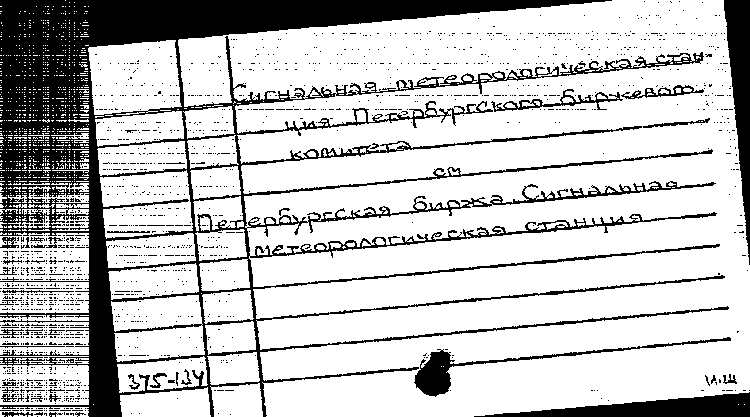 Сигнальная метеорологическая стан-
ция Петербургского биржевого
комитета
см
Петербургская биржа. Сигнальная
метеорологическая станция
375-134
И.Ш